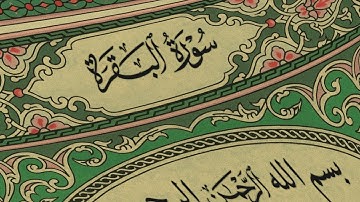 سُورَةُ الْبَقَرَةِ
بِسْمِ اللهِ الرَّحْمٰنِ